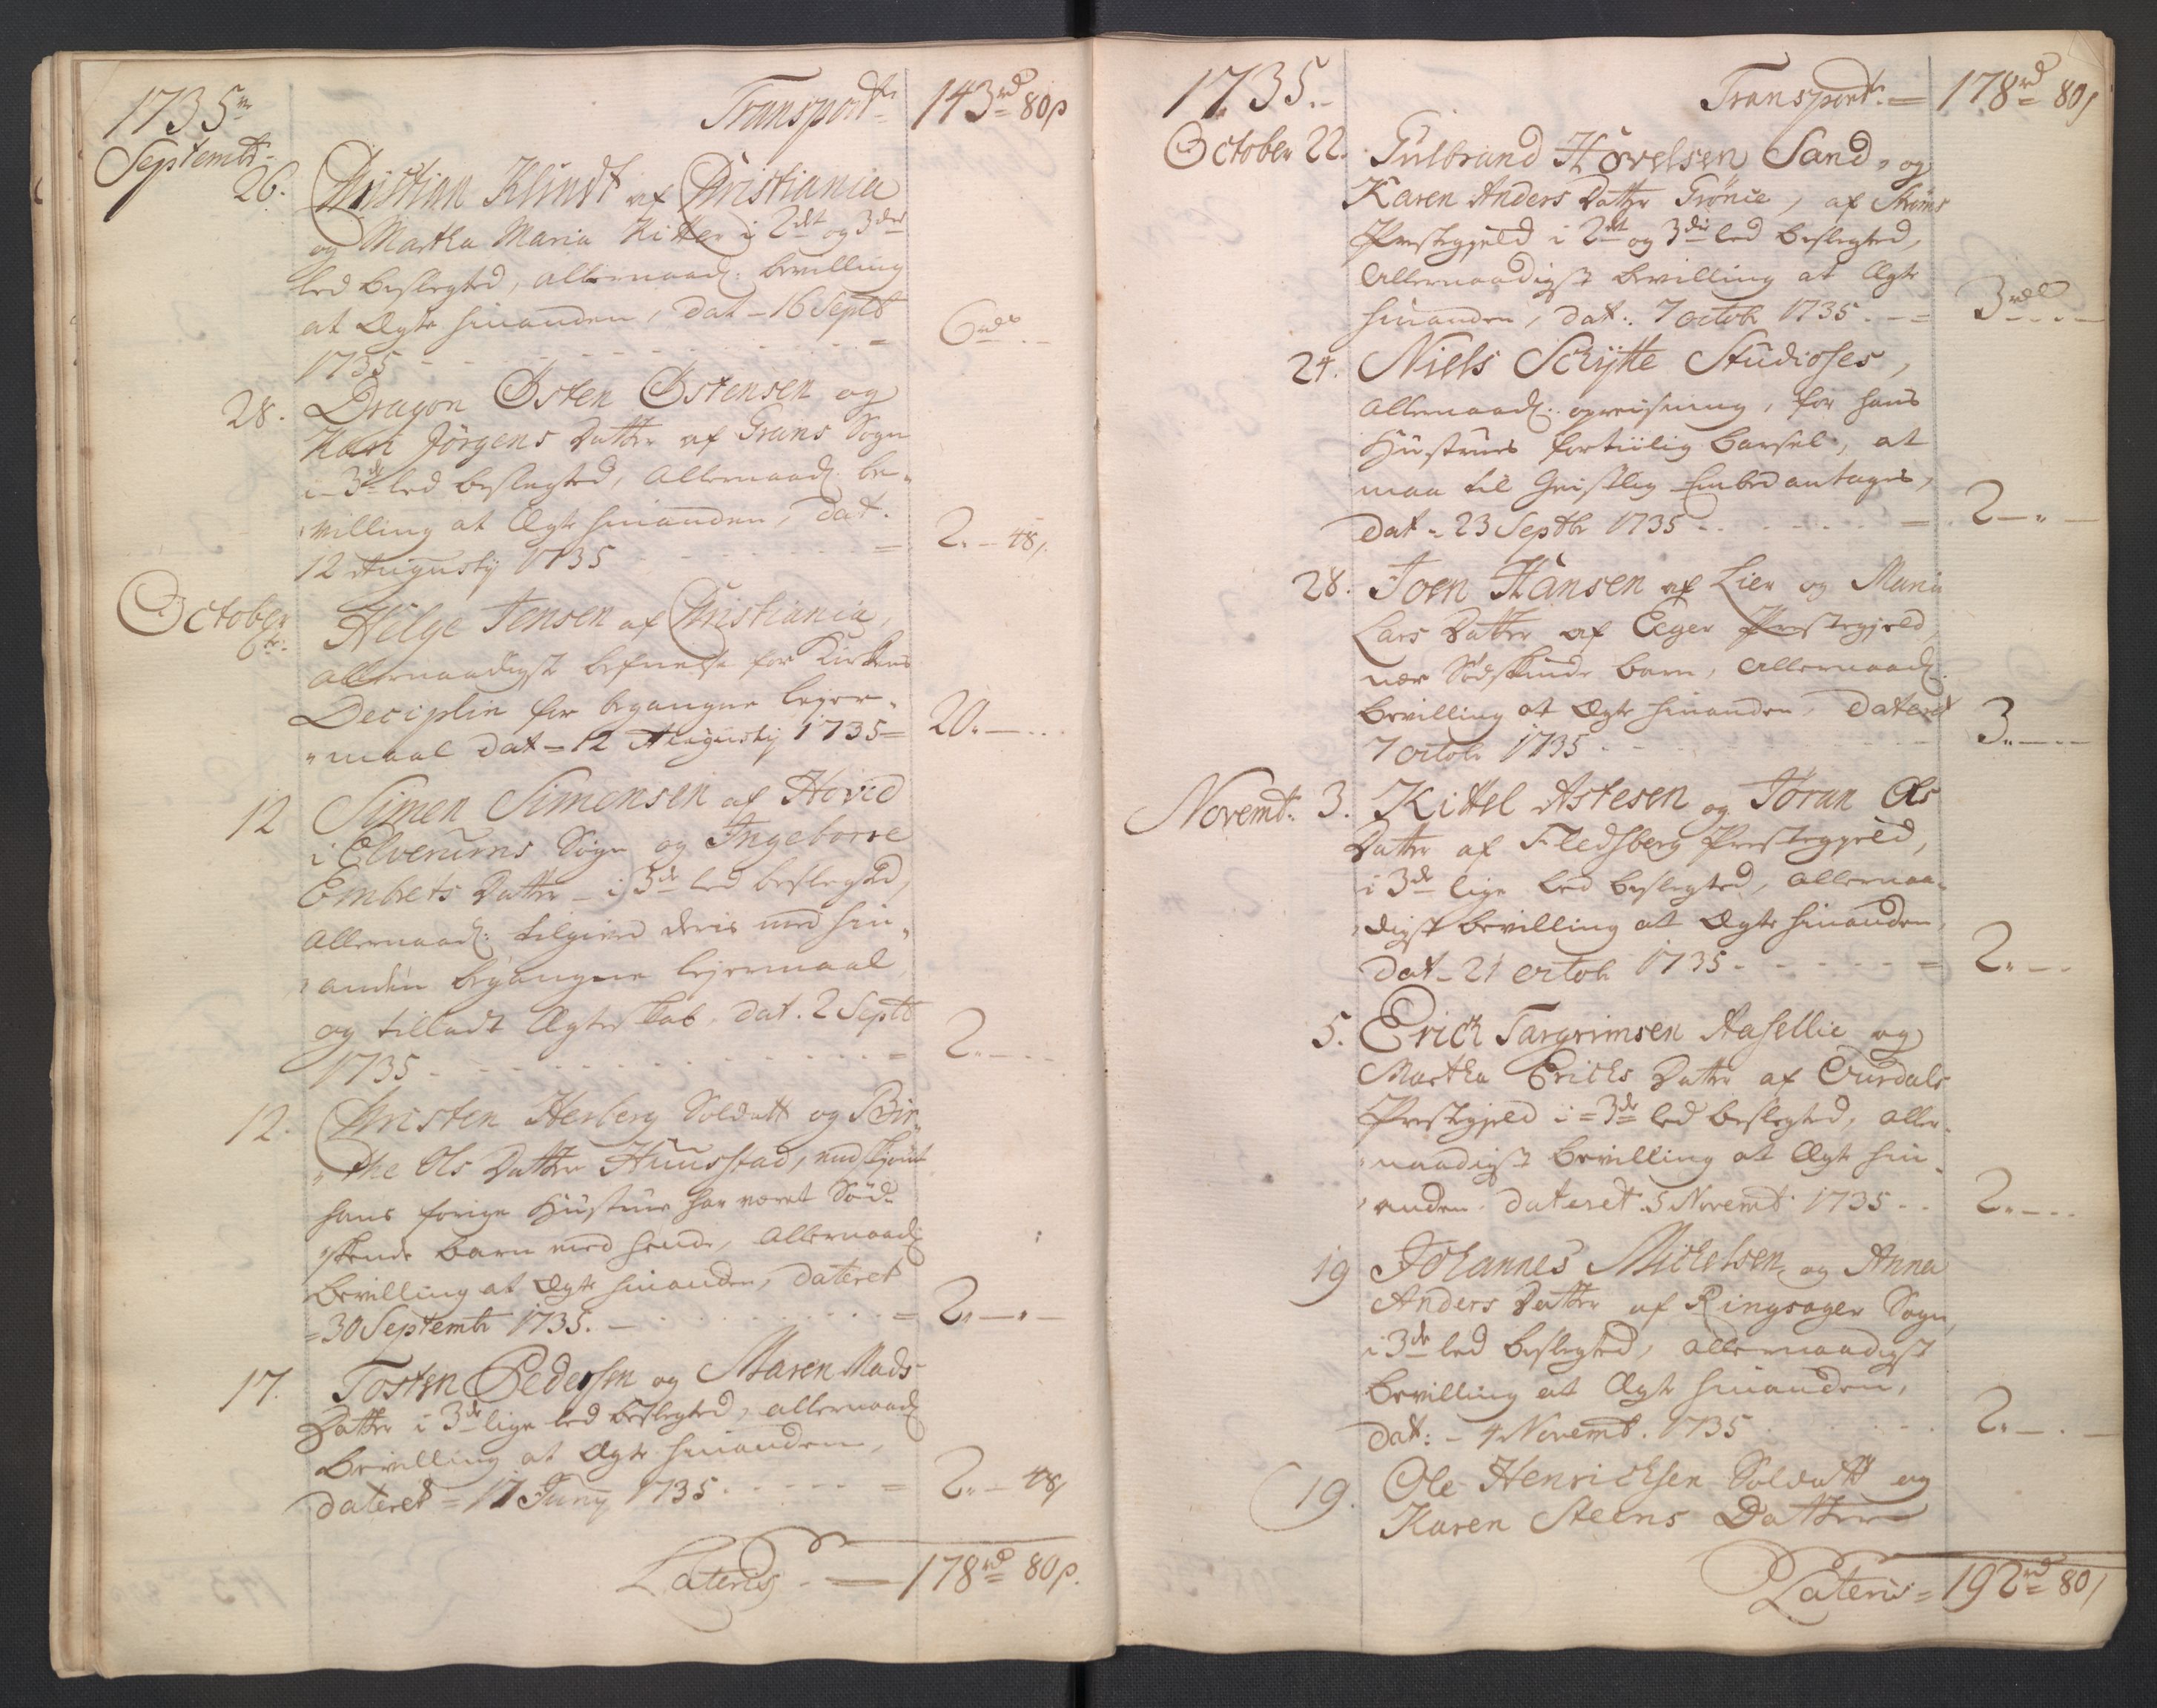 1735
Transport = 143 rd 80 s
Septembr
26. Christian Klindt af Christiania
og Martha Maria Ritter i 2det og 3die
led beslegted, allernaad: bevilling
at Ægte hinanden, dat = 16 Septb
1735 - - - = 6 rdr
28. Dragon Østen Østensen og
Kari Jörgens Datter af Grans Sogn
i 3de led beslegted, Allernaad: be-
villing at Ægte hinanden, dat.
12 Augustij 1735 - - - = 2. - 48.
October
6te. Helge Jensen af Christiania,
allernaadigst befrielse for Kirkens
Deciplin for begangne lejer-
maal dat = 12 Augustij 1735 = 20. -
12 Simen Simensen af Hovid
i Elverums Sogn og Ingeborre
Embrets Datter - i 3de led beslegted,
Allernaad: tilgived deris med hin-
anden begangne lejermaal
og tilladt Ægteskab. dat. 2 Septb
1735 - - - = 2. -
12. Christen Herberg Soldatt og Bir-
the Ols Datter Huusstad, endskjönt
hans forige Hustrue har veret Söd-
skende barn med hende, Allernaad:
bevilling at Ægte hinanden, dateret
= 30 Septembr 1735. - - - = 2. -
17. Tosten Pedersen og Maren Mads
Datter i 3de lige led beslegted, allernaad:
bevilling at Ægte hinanden,
dateret = 17 Juny 1735. - - - = 2. - 48
Lateris - = 178 rd 80 s.
1735. -
Transport. = 178 rd 80 s
October 22. Gulbrand Hovelsen Sand, og
Karen Anders Datter Grönie, af Ströms
Prestegjeld i 2det og 3die led beslegted,
Allernaadigst bevilling at Ægte
hinanden, dat: 7 octob 1735. - = 3 rdr
24. Niels Schytte Studioses,
Allernaad: opreisning, for hans
Hustrues fortiilig barsel, at
maa til Geistlig Embed antages,
dat = 23 Septbr 1735 - - - = 2 -
28. Joen Hansen af Lier og Maria
Lars Datter af Eeger Prestegjeld,
nær Södskinde barn, Allernaad:
bevilling at Ægte hinanden, dateret
7 octob 1735 - - - 3. -
Novemb: 3. Kittel Astesen og Jöran Ols
Datter af Fledsberg Prestegjeld,
i 3de lige led beslegted, allernaa-
digst bevilling at Ægte hinanden,
dat = 21 octob 1735 - - - = 2. -
5. Erich Targrimsen Aasellie og
Martha Erichs Datter af Ourdals
Prestegjeld i = 3de led beslegted, aller-
naadigst bevilling at Ægte hin-
anden. dateret. 5 Novemb 1735 - - 2. -
19 Johannes Michelsen og Anna
Anders Datter af Ringsager Sogn,
i 3de led beslegted, allernaadigst
bevilling at Ægte hinanden,
dat: - 4 Novemb. 1735 - - - 2. -
19. Ole Henrichsen Soldatt og
Karen Steens Datter
Lateris = 192 rd 80 s